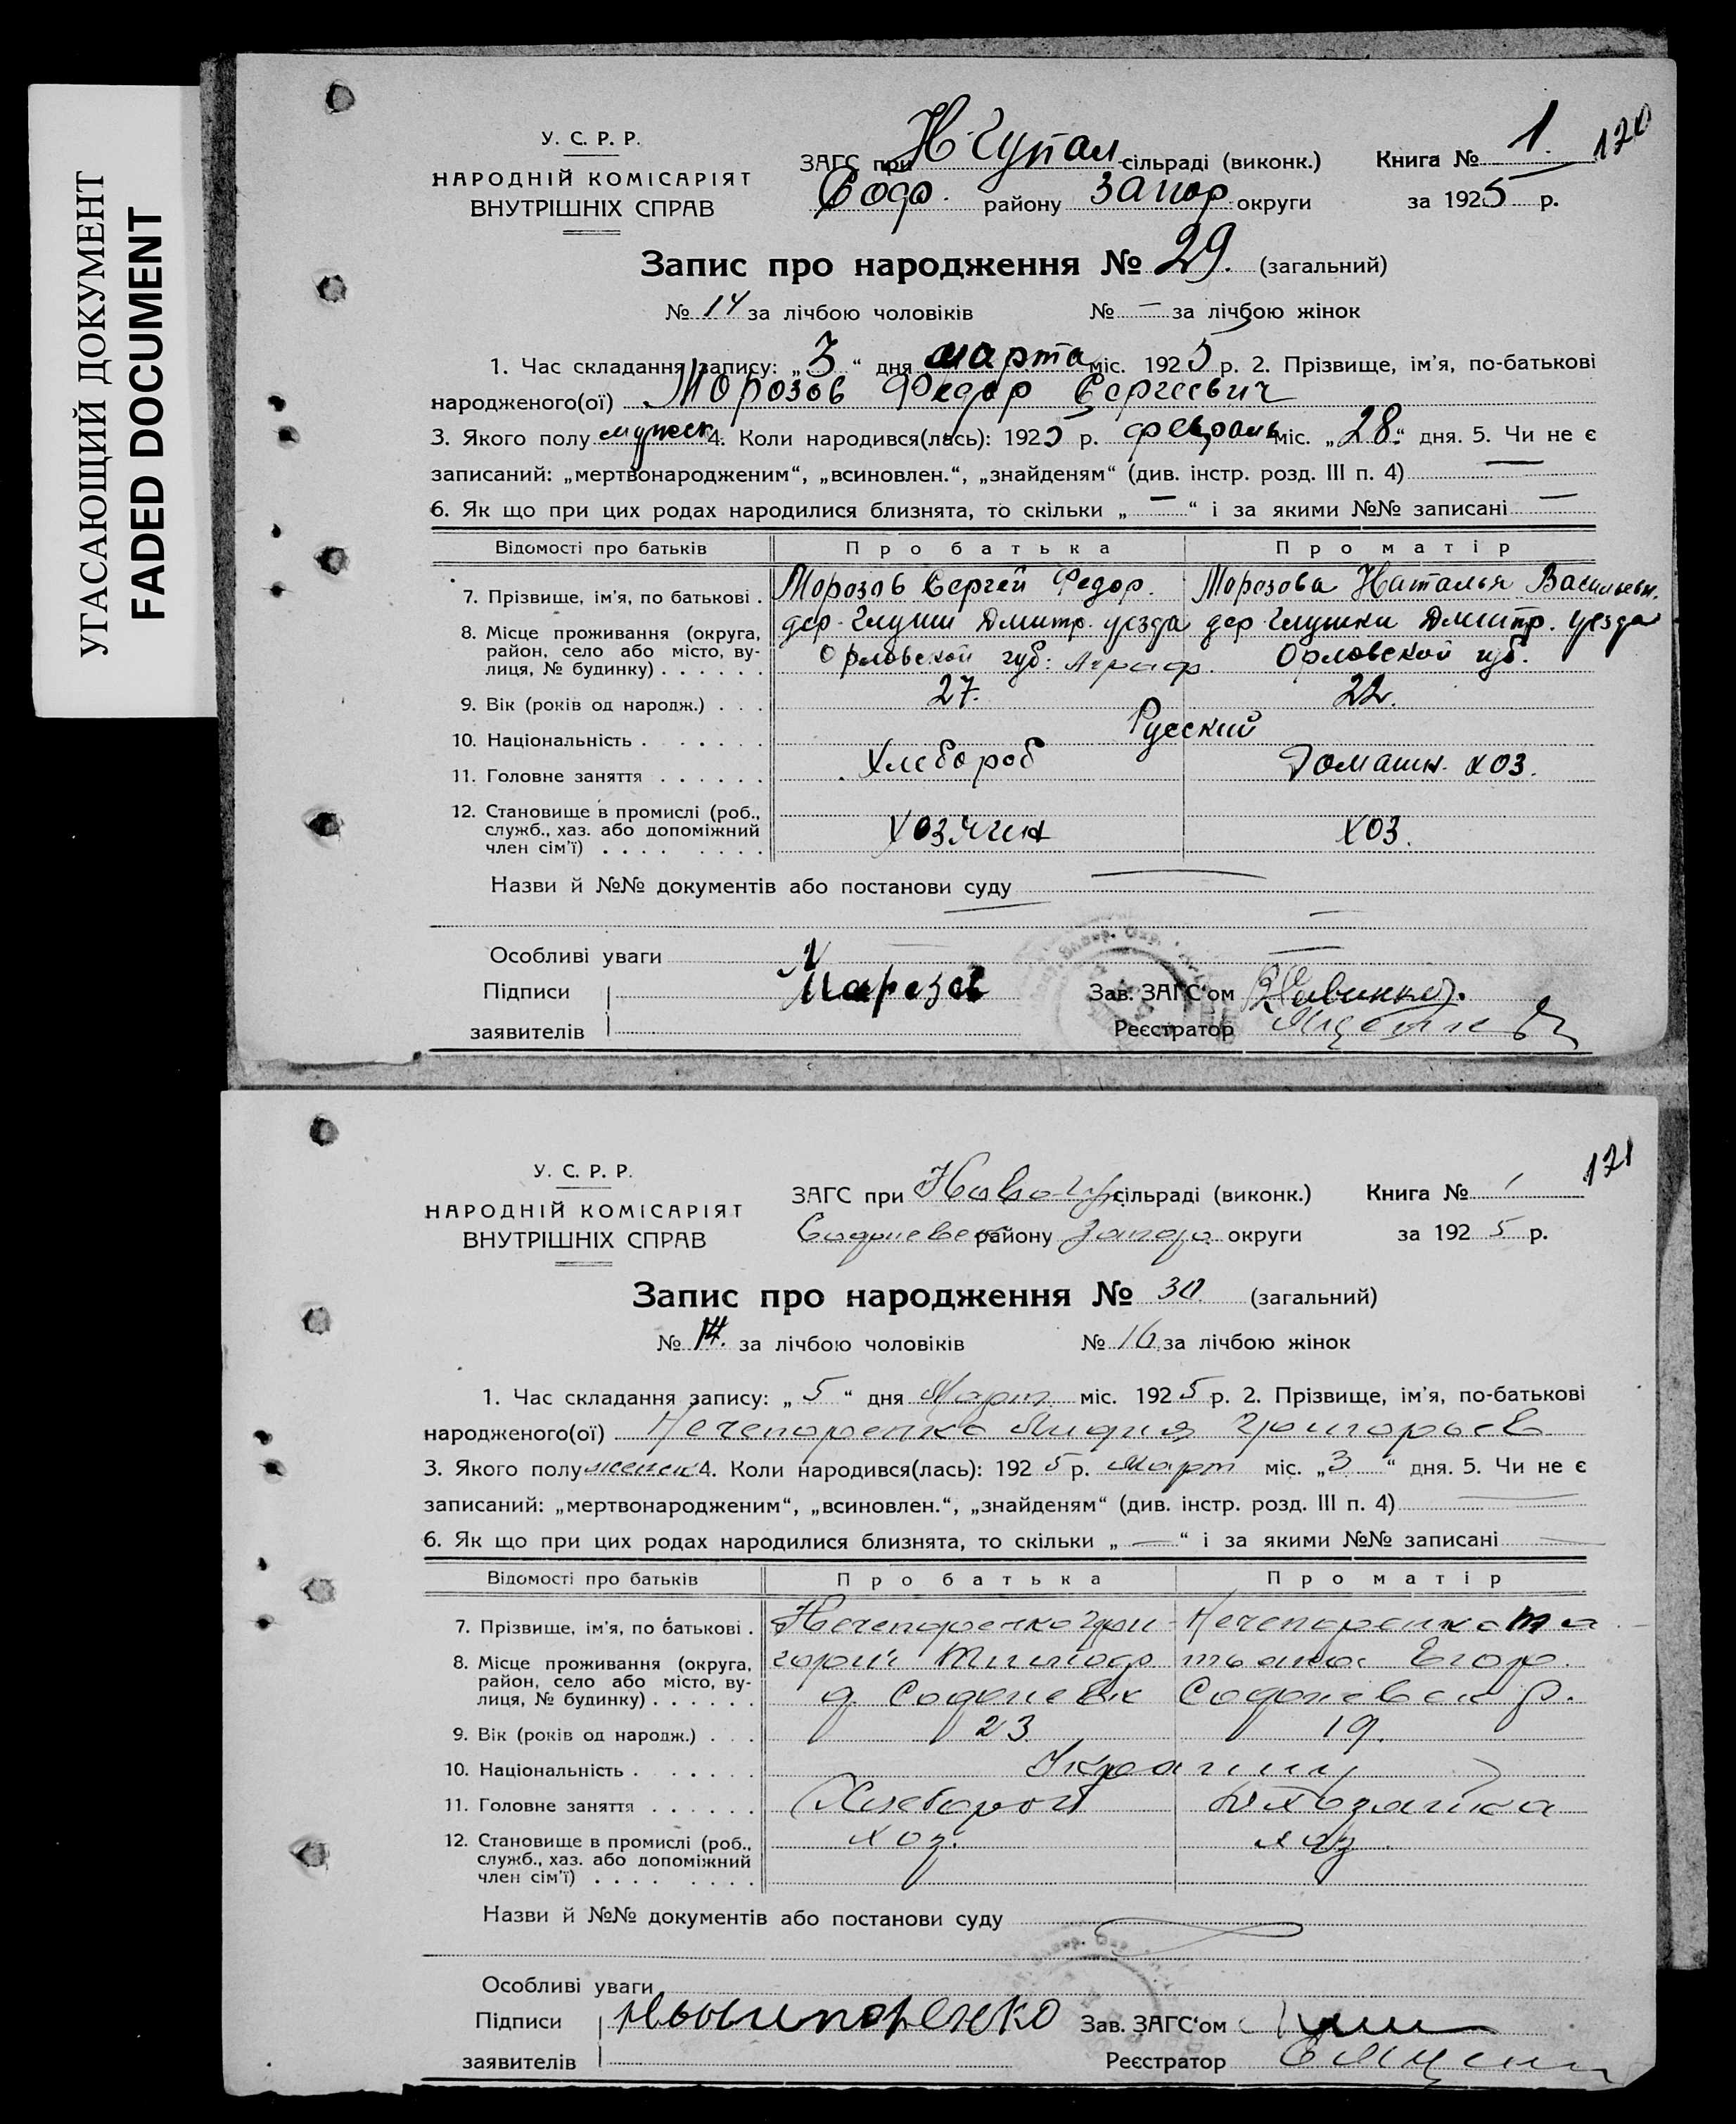 УГАСАЮЩИЙ ДОКУМЕНТ
FADED DOCUMENT
120
У. С. Р. Р.
НАРОДНІЙ КОМІСАРІЯТ
ВНУТРІШНІХ СПРАВ
ЗАГС при Н-Гупал сільраді (виконк.) Книга № 1.
Софз. району Запор. округи за 1925 р.
Запис про народження № 29. (загальний)
№ 14 за лічбою чоловіків № — за лічбою жінок
1. Час складання запису: „3“ дня марта міс. 1925 р. 2. Прізвище, ім’я, по-батькові
народженого(ої) Морозов Федор Сергеевич
3. Якого полу мужск. 4. Коли народився(лась): 1925 р. февраль міс. „28.“ дня. 5. Чи не є
записаний: „мертвонародженим“, „всиновлен.“, „знайденям“ (див. інстр. розд. III п. 4) —
6. Як що при цих родах народилися близнята, то скільки „—“ і за якими №№ записані —
Відомості про батьків Про батька Про матір
7. Прізвище, ім’я, по батькові . Морозов Сергей Федор. Морозова Наталья Васильевн.
8. Місце проживання (округа, район, село або місто, вулиця, № будинку) . . . . . . дер. Глушки Дмитр. уезда Орловской губ. дер Глушки Дмитр. уезда Орловской губ.
9. Вік (років од народж.) . . . 27. 22.
10. Національність . . . . . . Русский
11. Головне заняття . . . . . . Хлебороб Домашн. хоз.
12. Становище в промислі (роб., служб., хаз. або допоміжний член сім’ї) . . . . . . . . Хозяин хоз.
Назви й №№ документів або постанови суду
Особливі уваги
Підписи Марозов Зав. ЗАГС‘ом
заявителів Реєстратор
121
У. С. Р. Р.
НАРОДНІЙ КОМІСАРІЯТ
ВНУТРІШНІХ СПРАВ
ЗАГС при Ново-Гуп. сільраді (виконк.) Книга № 1
Софиевск району Запор. округи за 1925 р.
Запис про народження № 30 (загальний)
№ за лічбою чоловіків № 16 за лічбою жінок
1. Час складання запису: „5“ дня Март міс. 1925 р. 2. Прізвище, ім’я, по-батькові
народженого(ої) Нечепоренко Лидия Григорьев
3. Якого полу женск 4. Коли народився(лась): 1925 р. Март міс. „3“ дня. 5. Чи не є
записаний: „мертвонародженим“, „всиновлен.“, „знайденям“ (див. інстр. розд. III п. 4) —
6. Як що при цих родах народилися близнята, то скільки „—“ і за якими №№ записані —
Відомості про батьків Про батька Про матір
7. Прізвище, ім’я, по батькові . Нечепоренко Григорий Тимоф Нечепоренко Татьяна Егор.
8. Місце проживання (округа, район, село або місто, вулиця, № будинку) . . . . . . с. Софиевк Софиевск р.
9. Вік (років од народж.) . . . 23 19.
10. Національність . . . . . . Украинцы
11. Головне заняття . . . . . . Хлебороб Дом хозяйка
12. Становище в промислі (роб., служб., хаз. або допоміжний член сім’ї) . . . . . . . . хоз. хоз.
Назви й №№ документів або постанови суду
Особливі уваги
Підписи Зав. ЗАГС‘ом
заявителів Реєстратор